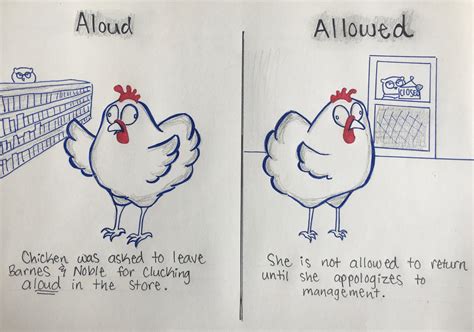 Aloud
Chicken was asked to leave
Barnes & Noble for Clucking
aloud in the store.
Allowed
CLOSED
She is not allowed to return
until she appologizes to
management.